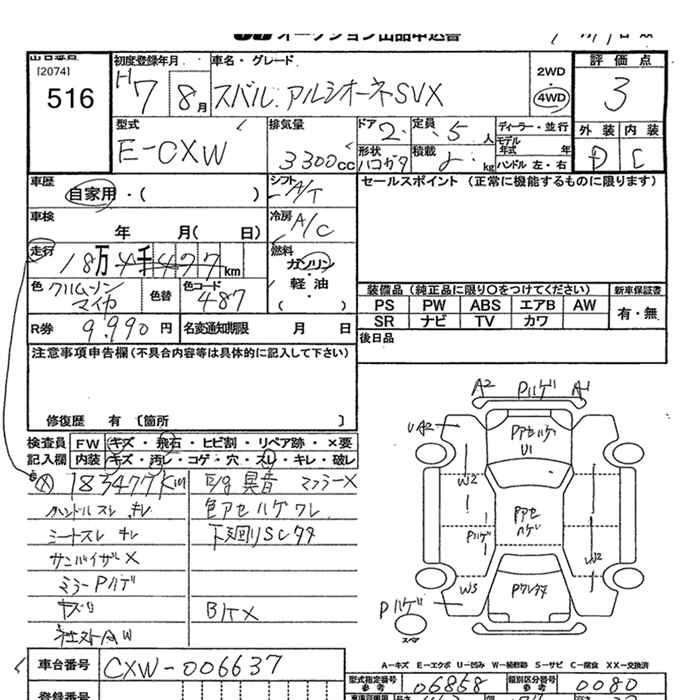 オークション出品申込書
出品番号
[2074]
516
初度登録年月
H7 8月
車名・グレード
スバル アルシオーネSVX
2WD
4WD
評価点
3
外装 内装
D C
型式
E-CXW
排気量
3300cc
ドア
2
定員
5人
形状
ハコガタ
積載
kg
ディーラー・並行
モデル
年式 年
ハンドル 左・右
車歴
自家用・( )
シフト
A/T
セールスポイント (正常に機能するものに限ります)
車検
年 月( 日)
冷房
A/C
走行
18万4千477km
燃料
ガソリン
・
軽油
・
( )
色
クリムーゾン
マイカ
色替
色コード
487
装備品(純正品に限り〇をつけてください)
新車保証書
PS PW ABS エアB AW
SR ナビ TV カワ
有・無
R券
9,990円
名変通知期限 月 日
後日品
注意事項申告欄(不具合内容等は具体的に記入して下さい)
修復歴 有 〔箇所 〕
検査員
記入欄
FW キズ・飛石・ヒビ割・リペア跡・×要
内装 キズ・汚レ・コゲ・穴・スレ・キレ・破レ
183477Km
E/g異音 マフラーX
ハンドルスレ キレ
色アセ ハゲ ワレ
シートスレ キレ
下廻りSCサタ
サンバイザーX
ミラーPハゲ
BケX
A2 Pハゲ A1
UA2
PアセハゲU1
W2
Pアセハゲ
Pハゲ
W2
W3
Pハゲ
スペア
A-キズ E-エクボ U-凹み W-補修跡 S-サビ C-腐食 XX-交換済
車台番号
CXW-006637
型式指定番号
参考
06858
類別区分番号
参考
0080
登録番号